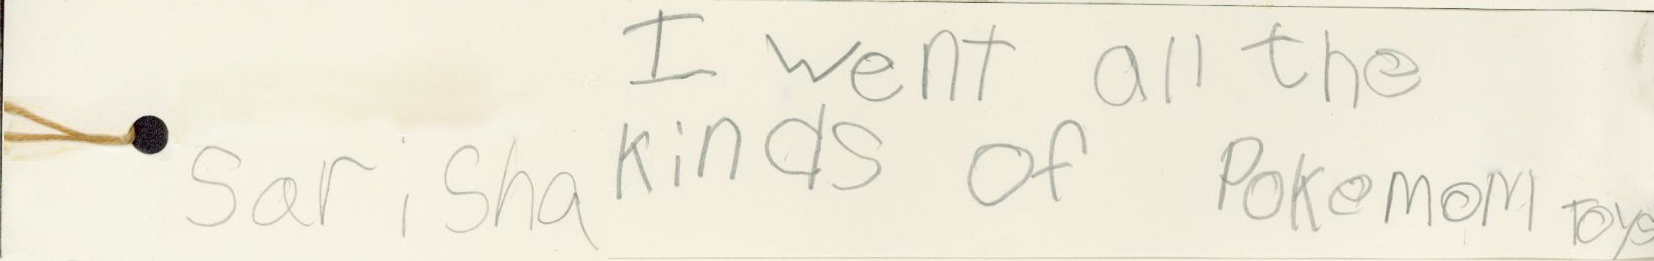 I went all the
kinds of Pokemom Toys
Sarisha